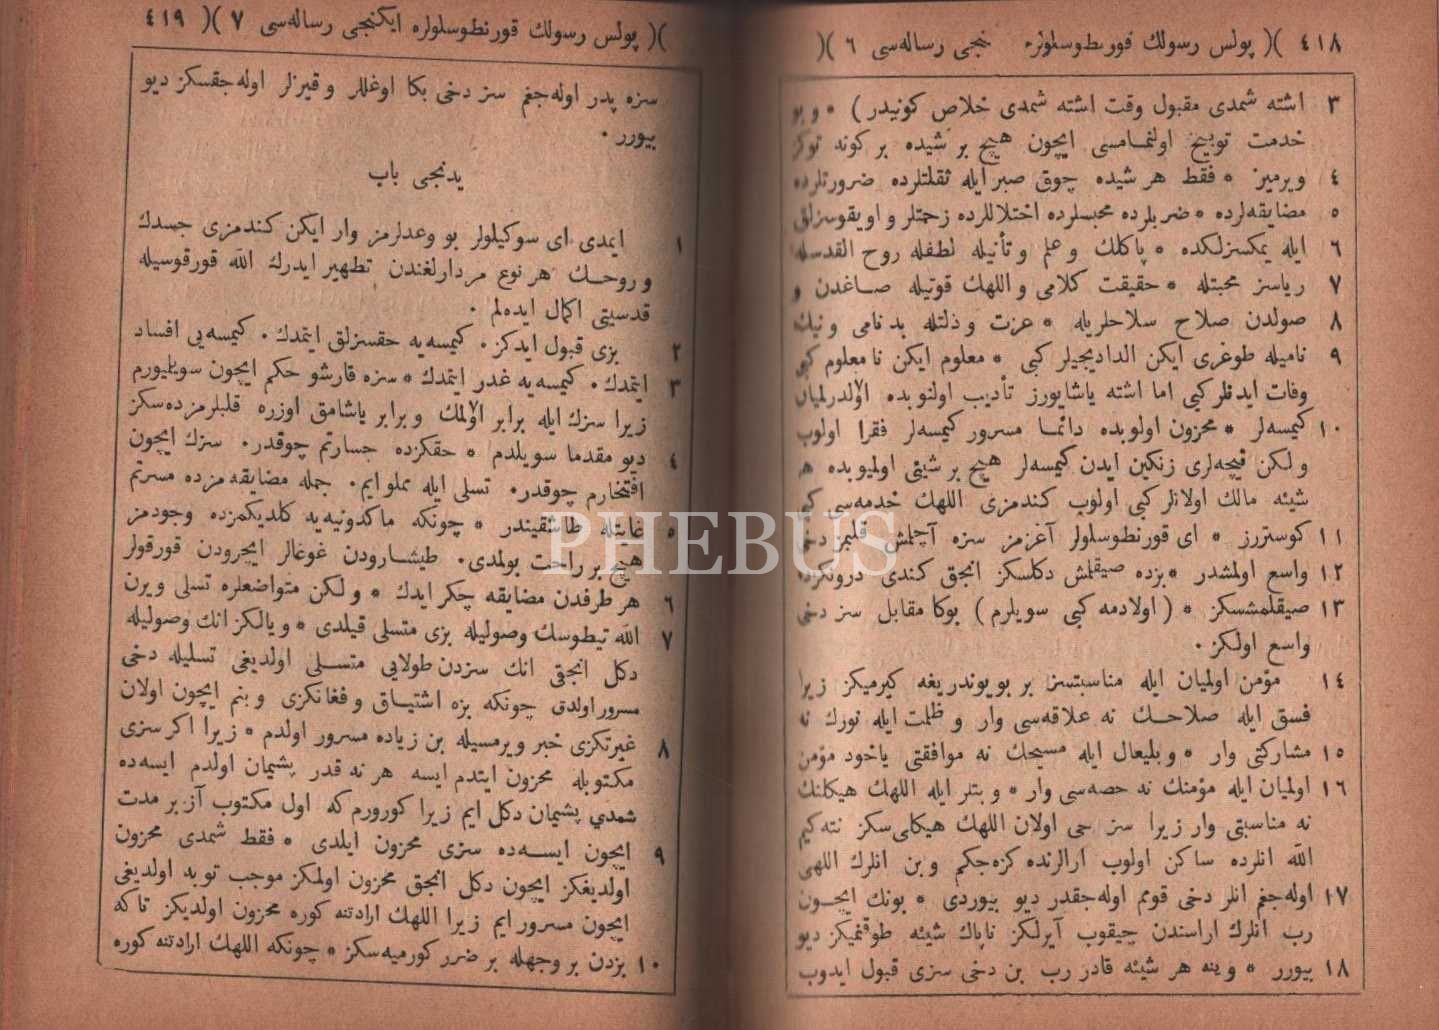 ٤١٨ )( پولس رسولك قورنطوسلولره نجی رساله‌سی ٦ )(
٣ اشته شمدی مقبول وقت اشته شمدی خلاص كونیدر ) * و بو
خدمت توبیخ اولنمامسی ایچون هیچ بر شیده بر كونه
٤ ویرمیز * فقط هر شیده چوق صبر ایله ثقلتلرده ضرورتلرده
٥ مضایقه‌لرده * ضربلرده محبسلرده اختلاللرده زحمتلر و اویقوسزلق
٦ ایله یمكسزلكده * پاكلك و علم و تأنیله لطفله روح القدسله
٧ ریاسز محبتله * حقیقت كلامی و اللهك قوتیله صاغدن و
٨ صولدن صلاح سلاحلریله * عزت و ذلتله بدنامی و نیك
٩ نامیله طوغری ایكن الدادیجیلر كبی * معلوم ایكن نامعلوم كبی
وفات ایدنلر كبی اما اشته یاشایورز تأدیب اولنوبده اولدرلمیان
١٠ كیمسه‌لر * محزون اولوبده دائما مسرور كیمسه‌لر فقرا اولوب
و لكن نیچه‌لری زنكین ایدن كیمسه‌لر هیچ بر شیئی اولمیوبده هر
شیئه مالك اولانلر كبی اولوب كندمزی اللهك خدمه‌سی كبی
١١ كوستررز * ای قورنطوسلولر آغزمز سزه آچلمش قلبمز دخی
١٢ واسع اولمشدر * بزده صیقلمش دكلسكز انجق كندی درونكزده
١٣ صیقلمشسكز * ( اولادمه كبی سویلرم ) بوكا مقابل سز دخی
واسع اولكز ٠
١٤ مؤمن اولمیان ایله مناسبتسز بر بویوندریغه كیرمیكز زیرا
فسق ایله صلاحك نه علاقه‌سی وار و ظلمت ایله نورك نه
١٥ مشاركتی وار * و بلیعال ایله مسیحك نه موافقتی یاخود مؤمن
١٦ اولمیان ایله مؤمنك نه حصه‌سی وار * و بتلر ایله اللهك هیكلنك
نه مناسبتی وار زیرا سز حی اولان اللهك هیكلی‌سكز نته‌كیم
الله انلرده ساكن اولوب ارالرنده كزه‌جكم و بن انلرك اللهی
١٧ اوله‌جغم انلر دخی قومم اوله‌جقدر دیو بیوردی * بونك ایچون
رب انلرك اراسندن چیقوب آیرلكز ناپاك شیئه طوقنمیكز دیو
١٨ بیورر * و ینه هر شیئه قادر رب بن دخی سزی قبول ایدوب
)( پولس رسولك قورنطوسلولره ایكنجی رساله‌سی ٧ )( ٤١٩
سزه پدر اوله‌جغم سز دخی بكا اوغللر و قیزلر اوله‌جقسكز دیو
بیورر ٠
یدنجی باب
١ ایمدی ای سوكیلولر بو وعدلرمز وار ایكن كندمزی جسدك
و روحك هر نوع مردارلغندن تطهیر ایدرك الله قورقوسیله
قدسیتی اكمال ایده‌لم ٠
٢ بزی قبول ایدكز ٠ كیمسه‌یه حقسزلق ایتمدك ٠ كیمسه‌یی افساد
٣ ایتمدك ٠ كیمسه‌یه غدر ایتمدك * سزه قارشو حكم ایچون سویلیورم
زیرا سزك ایله برابر اولمك و برابر یاشامق اوزره قلبلرمزده‌سكز
٤ دیو مقدما سویلدم * حقكزده جسارتم چوقدر ٠ سزك ایچون
افتخارم چوقدر ٠ تسلی ایله مملوایم ٠ جمله مضایقه‌مزده مسرتم
٥ غایتله طاشقیندر * چونكه ماكدونیه‌یه كلدیكمزده وجودمز
هیچ بر راحت بولمدی ٠ طیشارودن غوغالر ایچرودن قورقولر
٦ هر طرفدن مضایقه چكر ایدك * و لكن متواضعلره تسلی ویرن
٧ الله تیطوسك وصولیله بزی متسلی قیلدی * و یالكز انك وصولیله
دكل انجق انك سزدن طولایی متسلی اولدیغی تسلیله دخی
مسرور اولدق چونكه بزه اشتیاق و فغانكزی و بنم ایچون اولان
٨ غیرتكزی خبر ویرمسیله بن زیاده مسرور اولدم * زیرا اكر سزی
مكتوبله محزون ایتدم ایسه هر نه قدر پشیمان اولدم ایسه‌ده
شمدی پشیمان دكل ایم زیرا كورورم كه اول مكتوب آز بر مدت
٩ ایچون ایسه‌ده سزی محزون ایلدی * فقط شمدی محزون
اولدیغكز ایچون دكل انجق محزون اولمكز موجب توبه اولدیغی
ایچون مسرور ایم زیرا اللهك ارادتنه كوره محزون اولدیكز تا كه
١٠ بزدن بر وجهله بر ضرر كورمیه‌سكز * چونكه اللهك ارادتنه كوره
PHEBUS